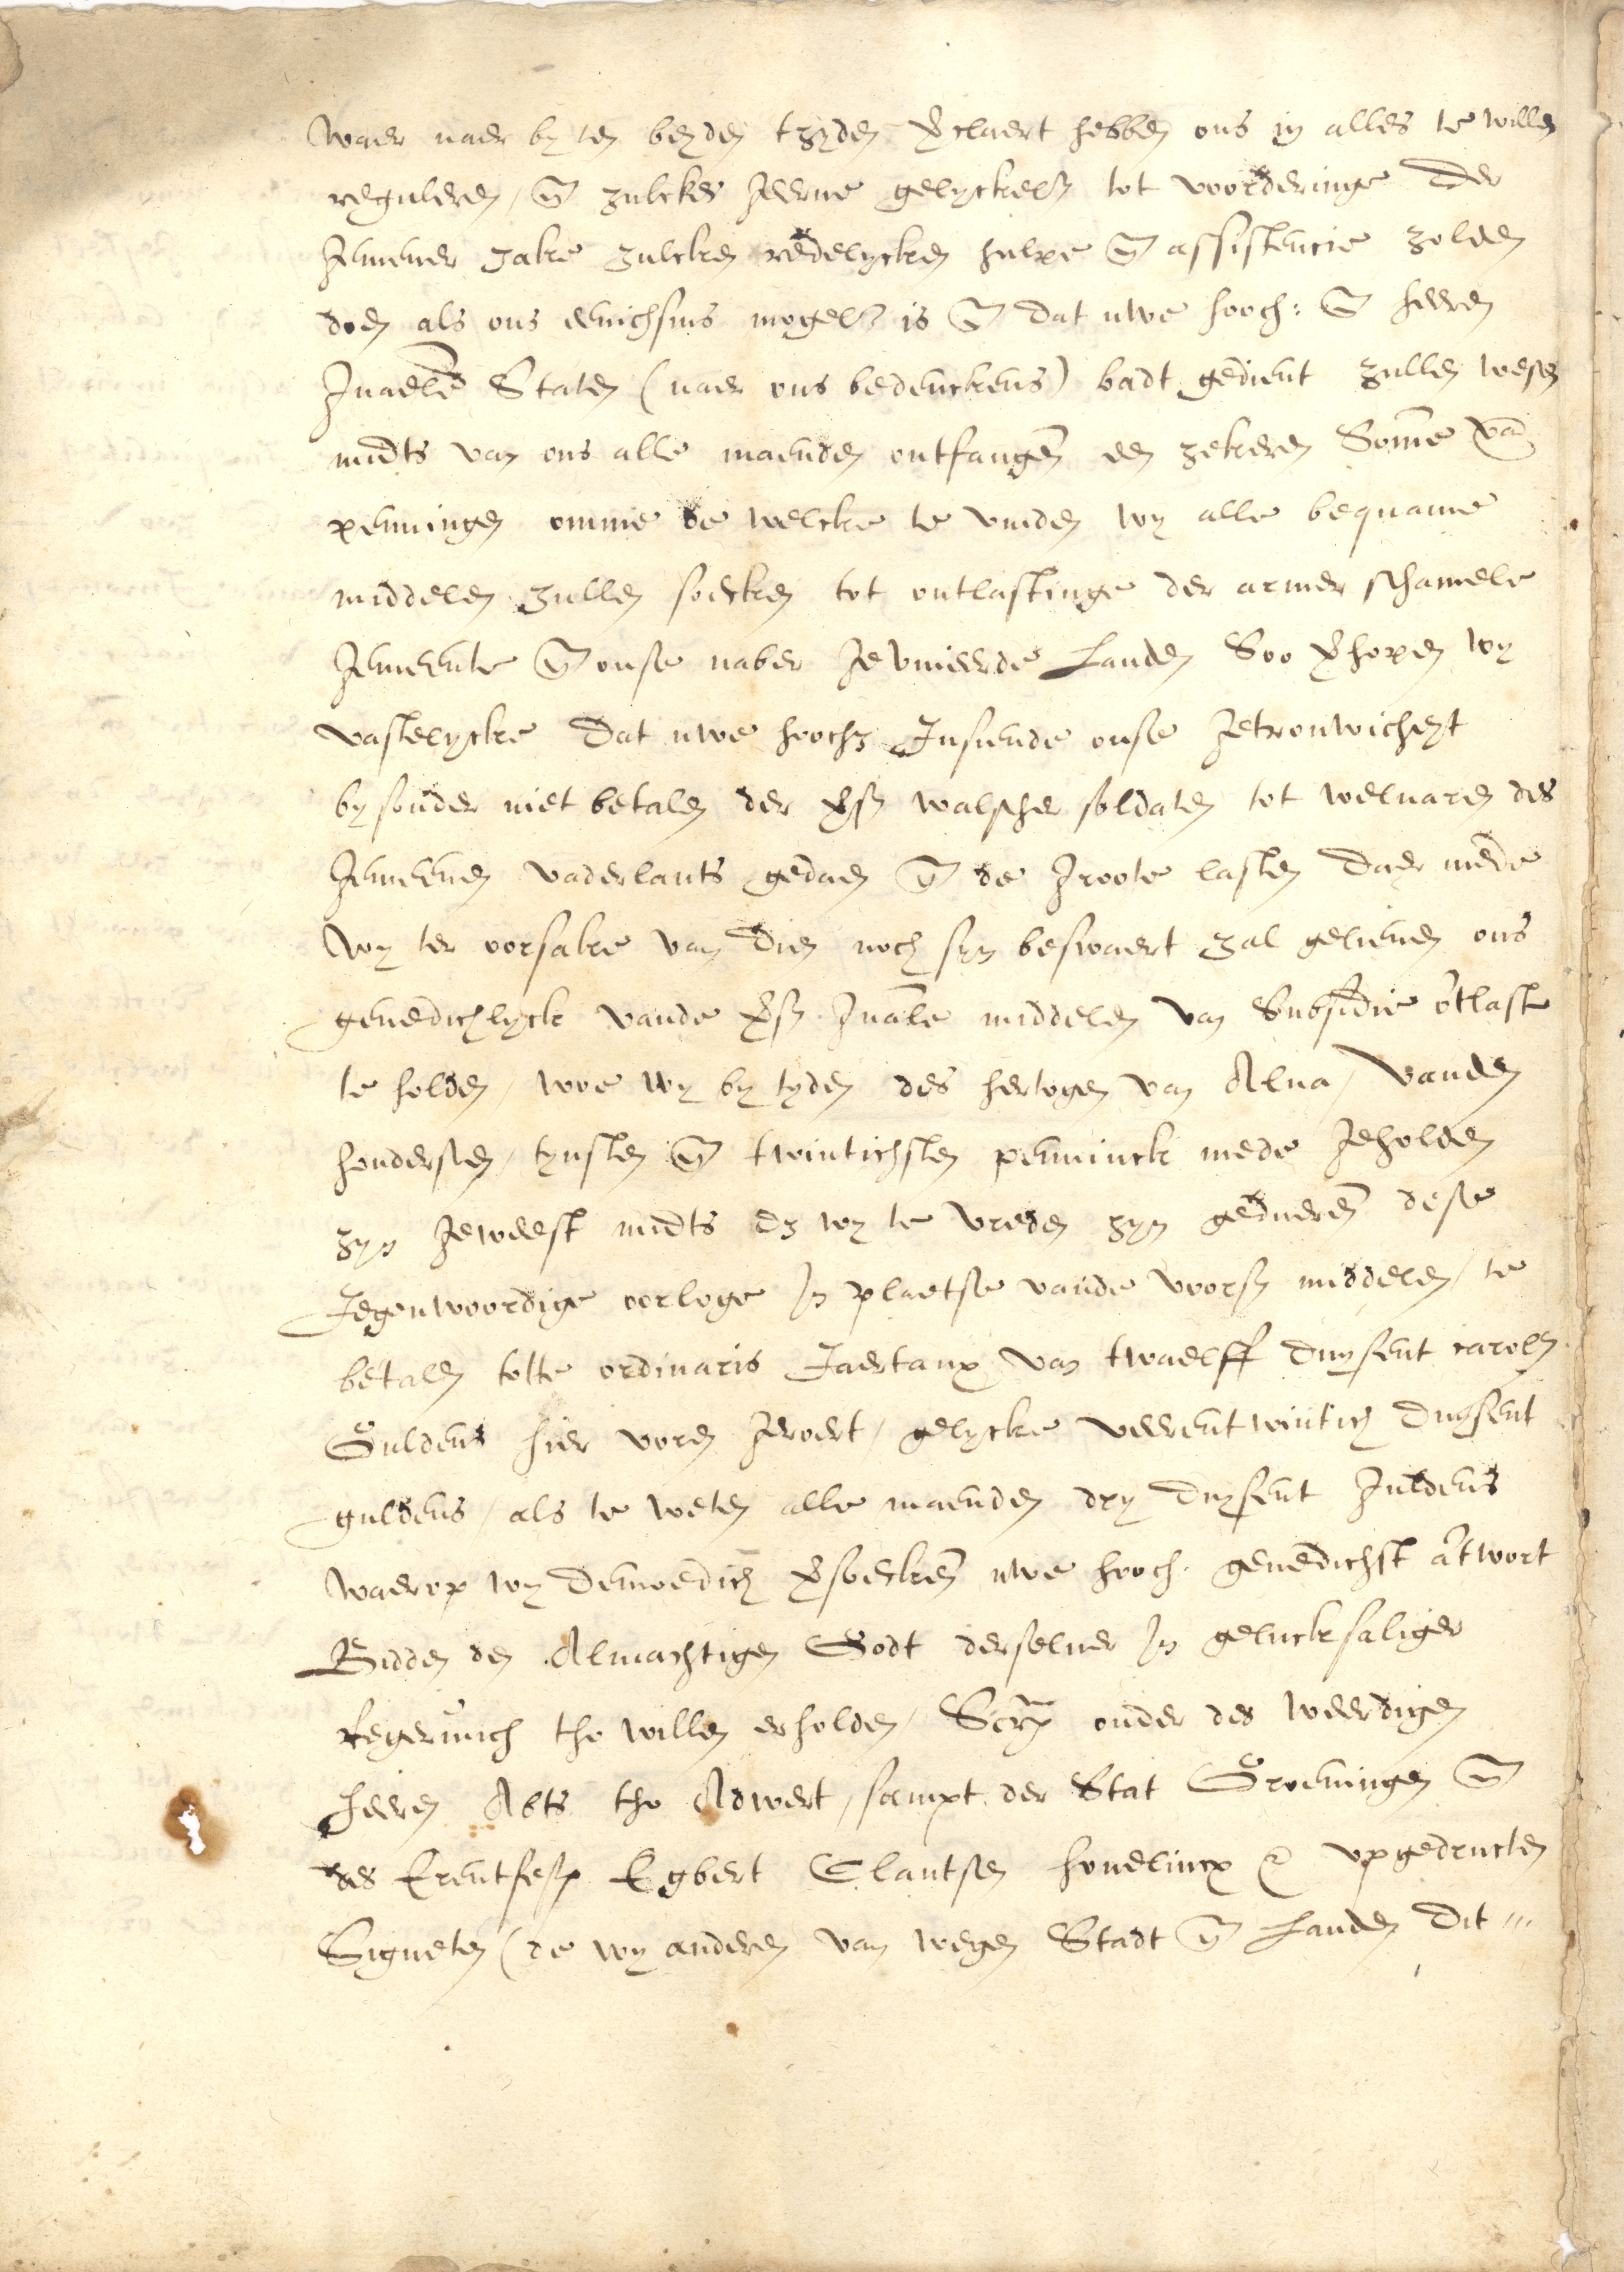 waer naer by ten beyden tzyden v̄claert hebben ons in alles te willen
reguleren, en̄ zulckes geerne gelyckelz tot voorderinge der
gemener zake zulcken redelycken hulpe en̄ assistencie zolden
doen als ons enichsins mogelz is en̄ dat uwe hooch: en̄ heeren
gnaelē Staten (naer ons bedenckens) badt gedient zullen wesen
midts van ons alle maenden ontfangen̄ een zekeren Som̄e van̄
penningen omme de welcke te vinden wy alle bequame
middelen zullen soecken tot ontlastinge der armer schamele
gemeente en̄ onse naber geunieerde Landen Soo v̄hopen wy
vastelycke dat uwe hoochz Insiende onse getrouwicheyt
bysonder int betalen der v̄sz walscher soldaten tot welvaren des
gemeenen vaderlants gedaen en̄ de groote lasten daer mede
wy ter oorsake van dien noch syn beswaert zal gelieven ons
genedichlyck vande v̄sz gnāle middelen van Subsidie ōtlast
te holden, woe wy by tyden des hertogen van Alva, vanden
hondersten, tynsten en̄ twintichsten penninck mede geholden
zyn geweest midts dz wy te vreden zyn geduren̄ dese
Jegenwoordige oorloge In plaetse vande voorsz middelen, te
betalen totte ordinaris Jaertaux van twaelff duysent carolz
Guldens hier voren geroert, gelycke veerentwintich duysent
guldens, als te weten alle maenden dry duysent guldens
waerop wy demoedich v̄soecken̄ uwe hooch. genedichst ātwort
Bidden den Almachtigen Godt derselver In gelucksaliger
Regerūnch tho willen erholden, Scr̄ onder des weerdigen
heeren Abts tho Adwert, sampt der Stat Groeningen en̄
des Erentfesz Egbert Clantsen hovelincx upgedructen
Signeten (de wy anderen van wegen Stadt en̄ Landen dit